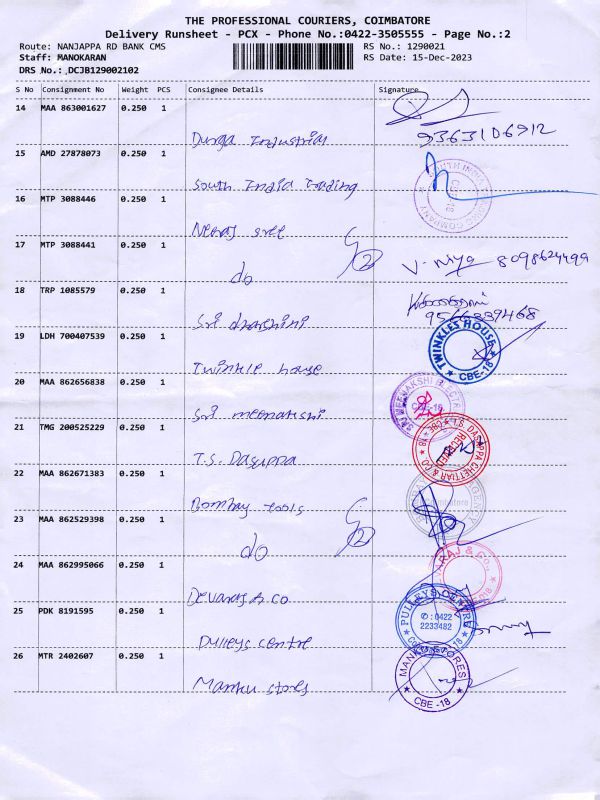 THE PROFESSIONAL COURIERS, COIMBATORE
Delivery Runsheet - PCX - Phone No.:0422-3505555 - Page No.:2
Route: NANJAPPA RD BANK CMS RS No.: 1290021
Staff: MANOKARAN RS Date: 15-Dec-2023
DRS No.: DCJB129002102
S No Consignment No Weight PCS Consignee Details Signature
14 MAA 863001627 0.250 1
Durga Industrial 9363106912
15 AMD 27878073 0.250 1
South India Trading
16 MTP 3088446 0.250 1
Sree
17 MTP 3088441 0.250 1
do 8098624499
18 TRP 1085579 0.250 1
Sri dharshini 9566339468
19 LDH 700407539 0.250 1
Twinkle house TWINKLES HOUSE CBE-18
20 MAA 862656838 0.250 1
Sri meenakshi SRI MEENAKSHI ELECTRI
21 TMG 200525229 0.250 1
T.S. Dasuppa T.S. DASUPPA CHETTIAR & CO CBE-18 RECEIVED
22 MAA 862671383 0.250 1
Bombay tools
23 MAA 862529398 0.250 1
do
24 MAA 862995066 0.250 1
Devaraj & Co RAJ & Co.
25 PDK 8191595 0.250 1
Pulleys centre PULLEYS CENTRE ✆: 0422 2233482
26 MTR 2402607 0.250 1
Manku stores MANKU STORES CBE -18